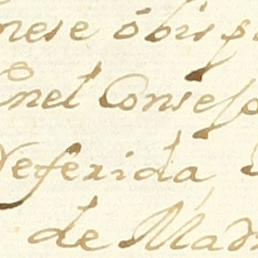 nese óbispa
Enel Consejo
Referida
de Mad